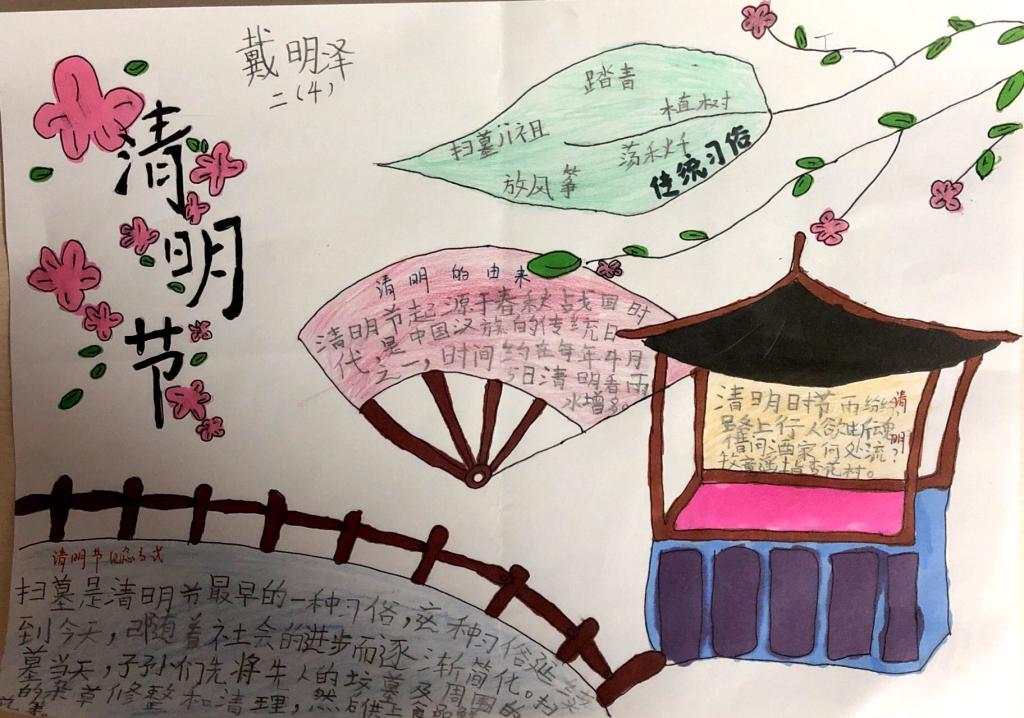 戴明泽
二(4)
清
明
节
踏青
植树
扫墓祭祖
荡秋千
放风筝
传统习俗
清明的由来
清明节起源于春秋战国时
代,是中国汉族的传统节日
之一,时间约在每年4月
5日清明春雨
水增多。
清明
清明时节雨纷纷,
路上行人欲断魂。
借问酒家何处流?
牧童遥指杏花村。
清明节纪念方式
扫墓是清明节最早的一种习俗,这种习俗延续
到今天,已随着社会的进步而逐渐简化。扫
墓当天,子孙们先将先人的坟墓及周围的
的杂草修整和清理,然后供上